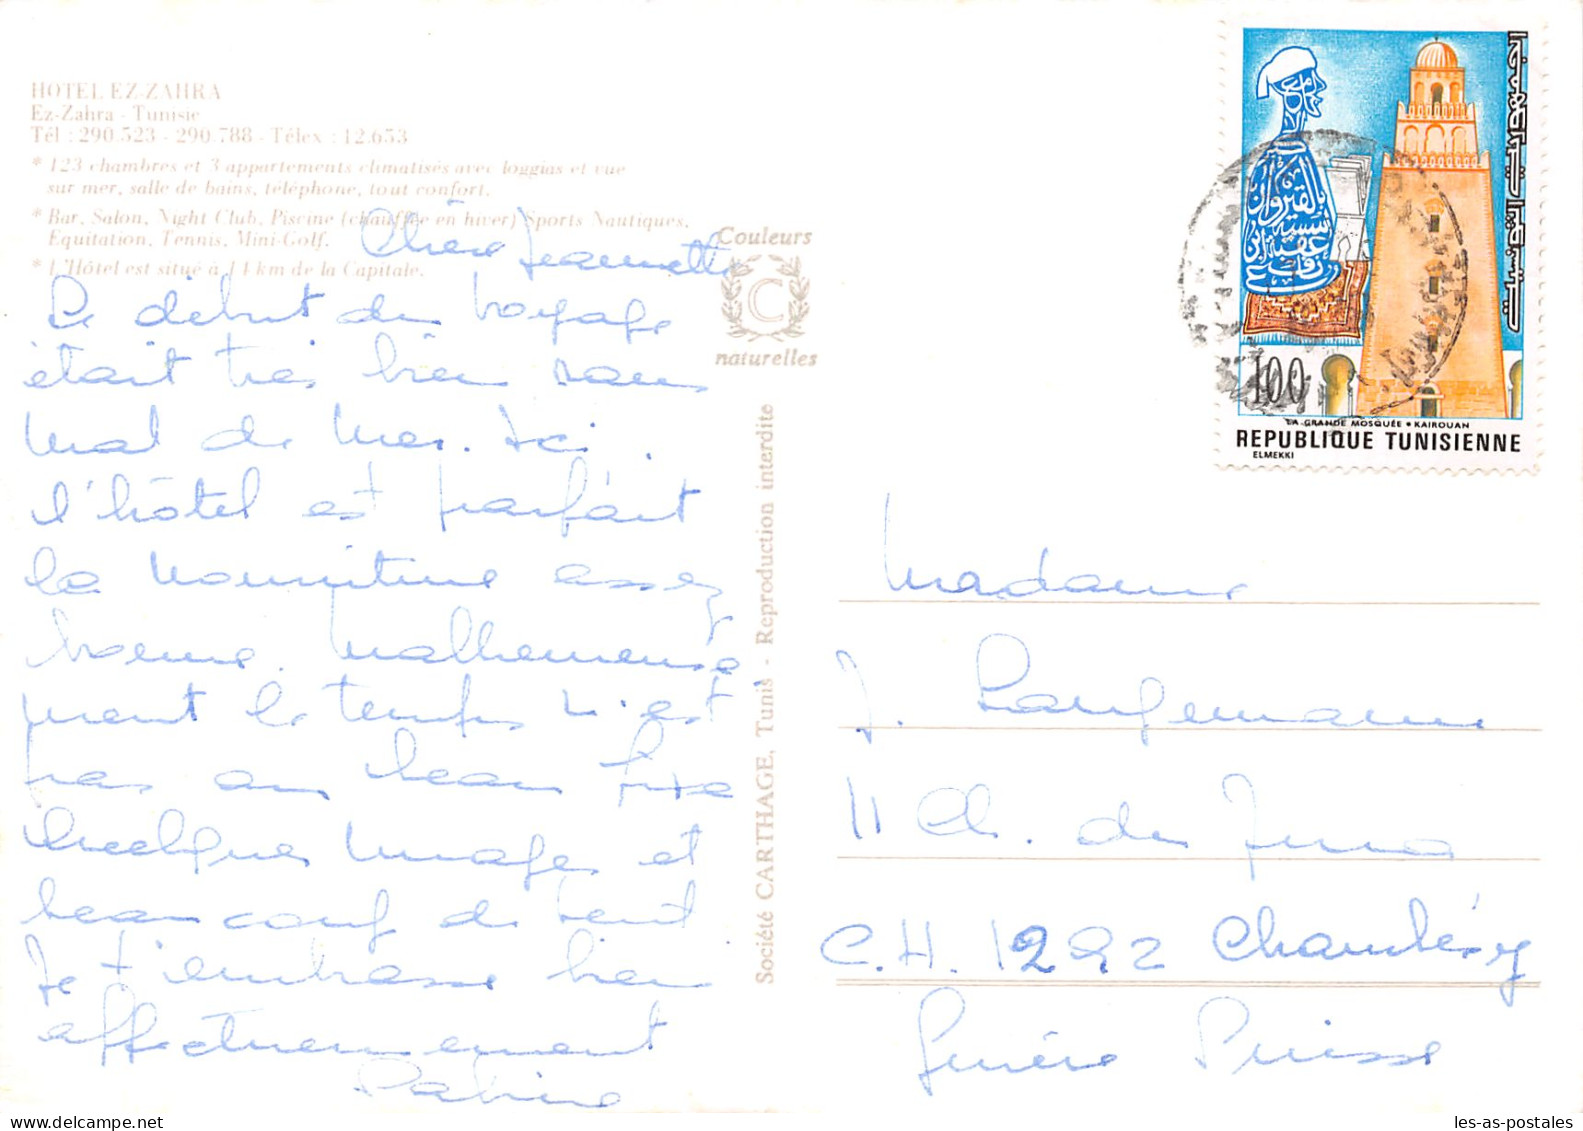 HOTEL EZ-ZAHRA
Ez-Zahra - Tunisie
Tél : 290.523 - 290.788 - Télex : 12.653
* 123 chambres et 3 appartements climatisés avec loggias et vue
sur mer, salle de bains, téléphone, tout confort.
* Bar, Salon, Night Club, Piscine (chauffée en hiver) Sports Nautiques,
Equitation, Tennis, Mini-Golf.
* L'Hôtel est situé à 14 km de la Capitale.
Couleurs
C
naturelles
Société CARTHAGE, Tunis - Reproduction interdite
Chère Jeannette
Le début du voyage
était très bien sans
mal de mer. Ici
l'hôtel est parfait
la nourriture assez
bonne. Malheureuse
ment le temps n'est
pas au beau fixe
quelques nuages et
beaucoup de vent
Je t'embrasse bien
affectueusement
Sabine
100
LA GRANDE MOSQUÉE • KAIROUAN
REPUBLIQUE TUNISIENNE
ELMEKKI
Madame
J. Langemann
11 Ch. des
C.H. 1292 Chambésy
Genève Suisse
les-as-postales